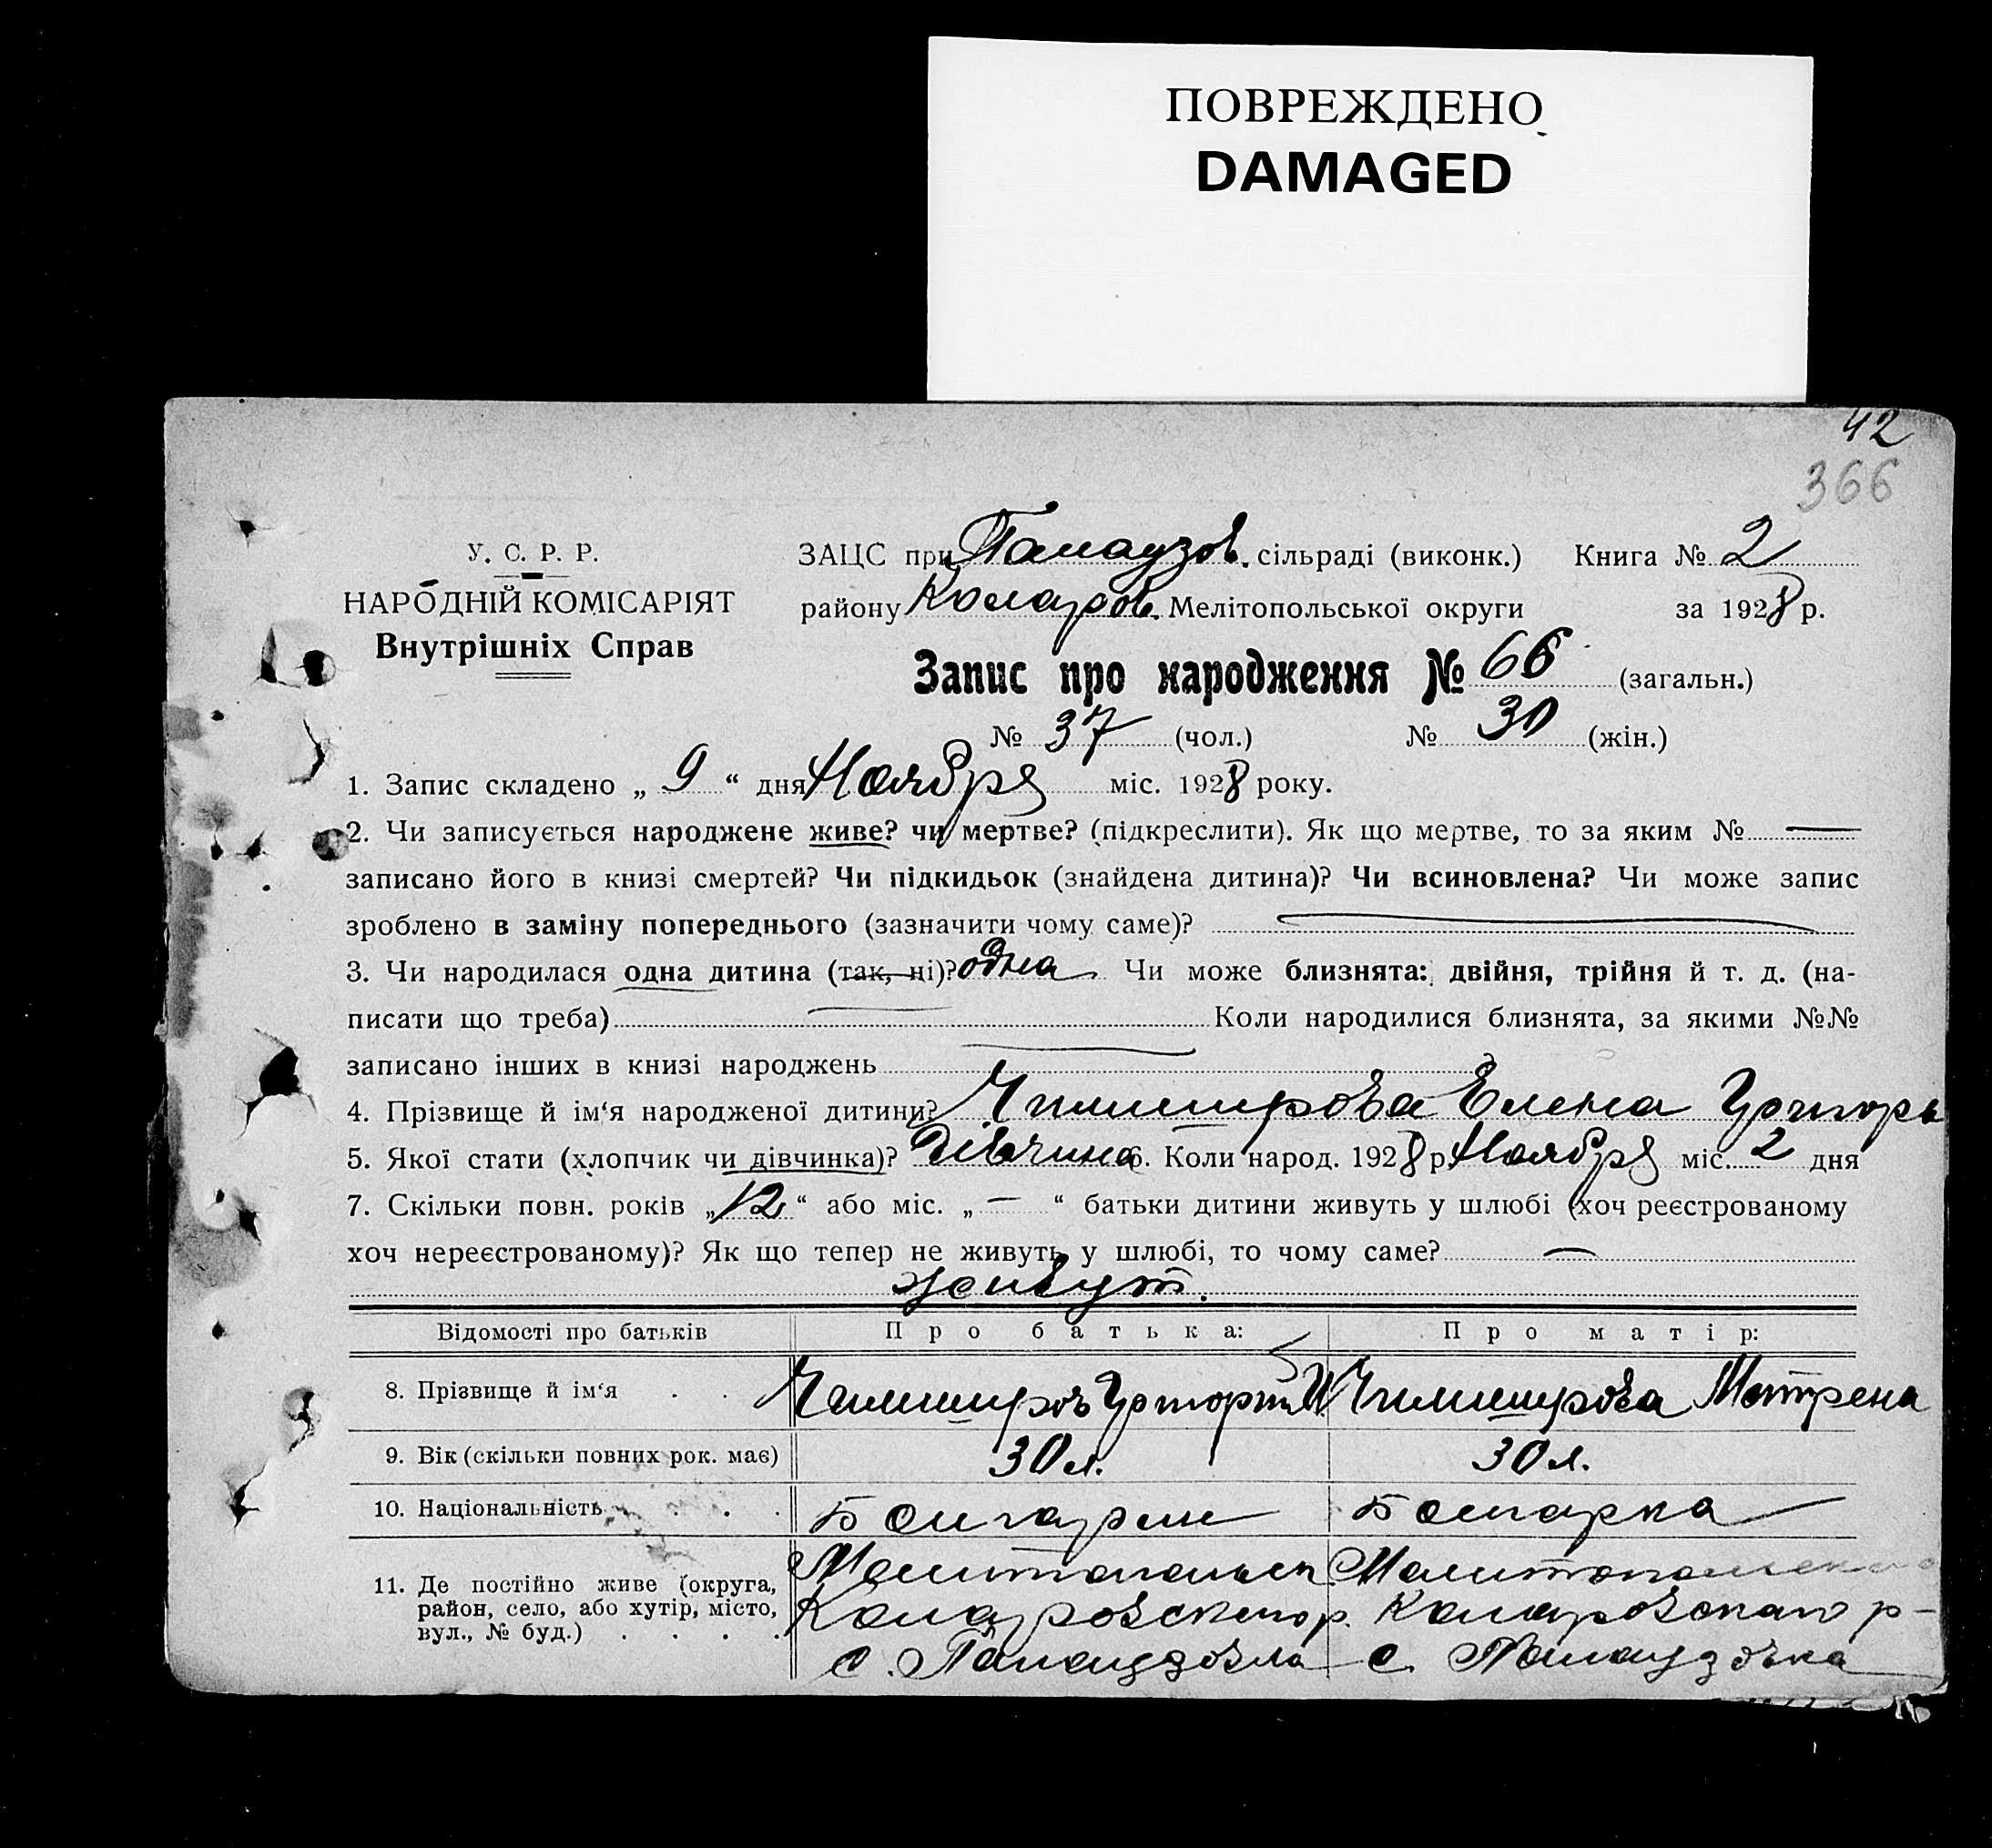 ПОВРЕЖДЕНО
DAMAGED
42
366
У. С. Р. Р.
НАРОДНІЙ КОМІСАРІЯТ
Внутрішніх Справ
ЗАЦС при Палаузов. сільраді (виконк.) Книга № 2
району Коларов. Мелітопольської округи за 1928 р.
Запис про народження № 66 (загальн.)
№ 37 (чол.) № 30 (жін.)
1. Запис складено „ 9 “ дня Ноября міс. 1928 року.
2. Чи записується народжене живе? чи мертве? (підкреслити). Як що мертве, то за яким № —
записано його в книзі смертей? Чи підкидьок (знайдена дитина)? Чи всиновлена? Чи може запис
зроблено в заміну попереднього (зазначити чому саме)? —
3. Чи народилася одна дитина (так, ні)? одна Чи може близнята: двійня, трійня й т. д. (на-
писати що треба) — Коли народилися близнята, за якими №№
записано інших в книзі народжень —
4. Прізвище й ім‘я народженої дитини? Чилишрова Елена
5. Якої стати (хлопчик чи дівчинка)? Дівчина 6. Коли народ. 1928 р. Ноября міс. 2 дня
7. Скільки повн. років „ 12 “ або міс. „ — “ батьки дитини живуть у шлюбі (хоч реєстрованому
хоч нереєстрованому)? Як що тепер не живуть у шлюбі, то чому саме? —
живут.
Відомості про батьків Про батька: Про матір:
8. Прізвище й ім‘я . . Чилишров Чилишрова Мотрена
9. Вік (скільки повних рок. має) 30 л. 30 л.
10. Національність . . . Болгарин Болгарка
11. Де постійно живе (округа, Мелитопольск. Мелитопольского
район, село, або хутір, місто, Коларовского р. Коларовского р-
вул., № буд.) . . . . с. Палаузовка с. Палаузовка